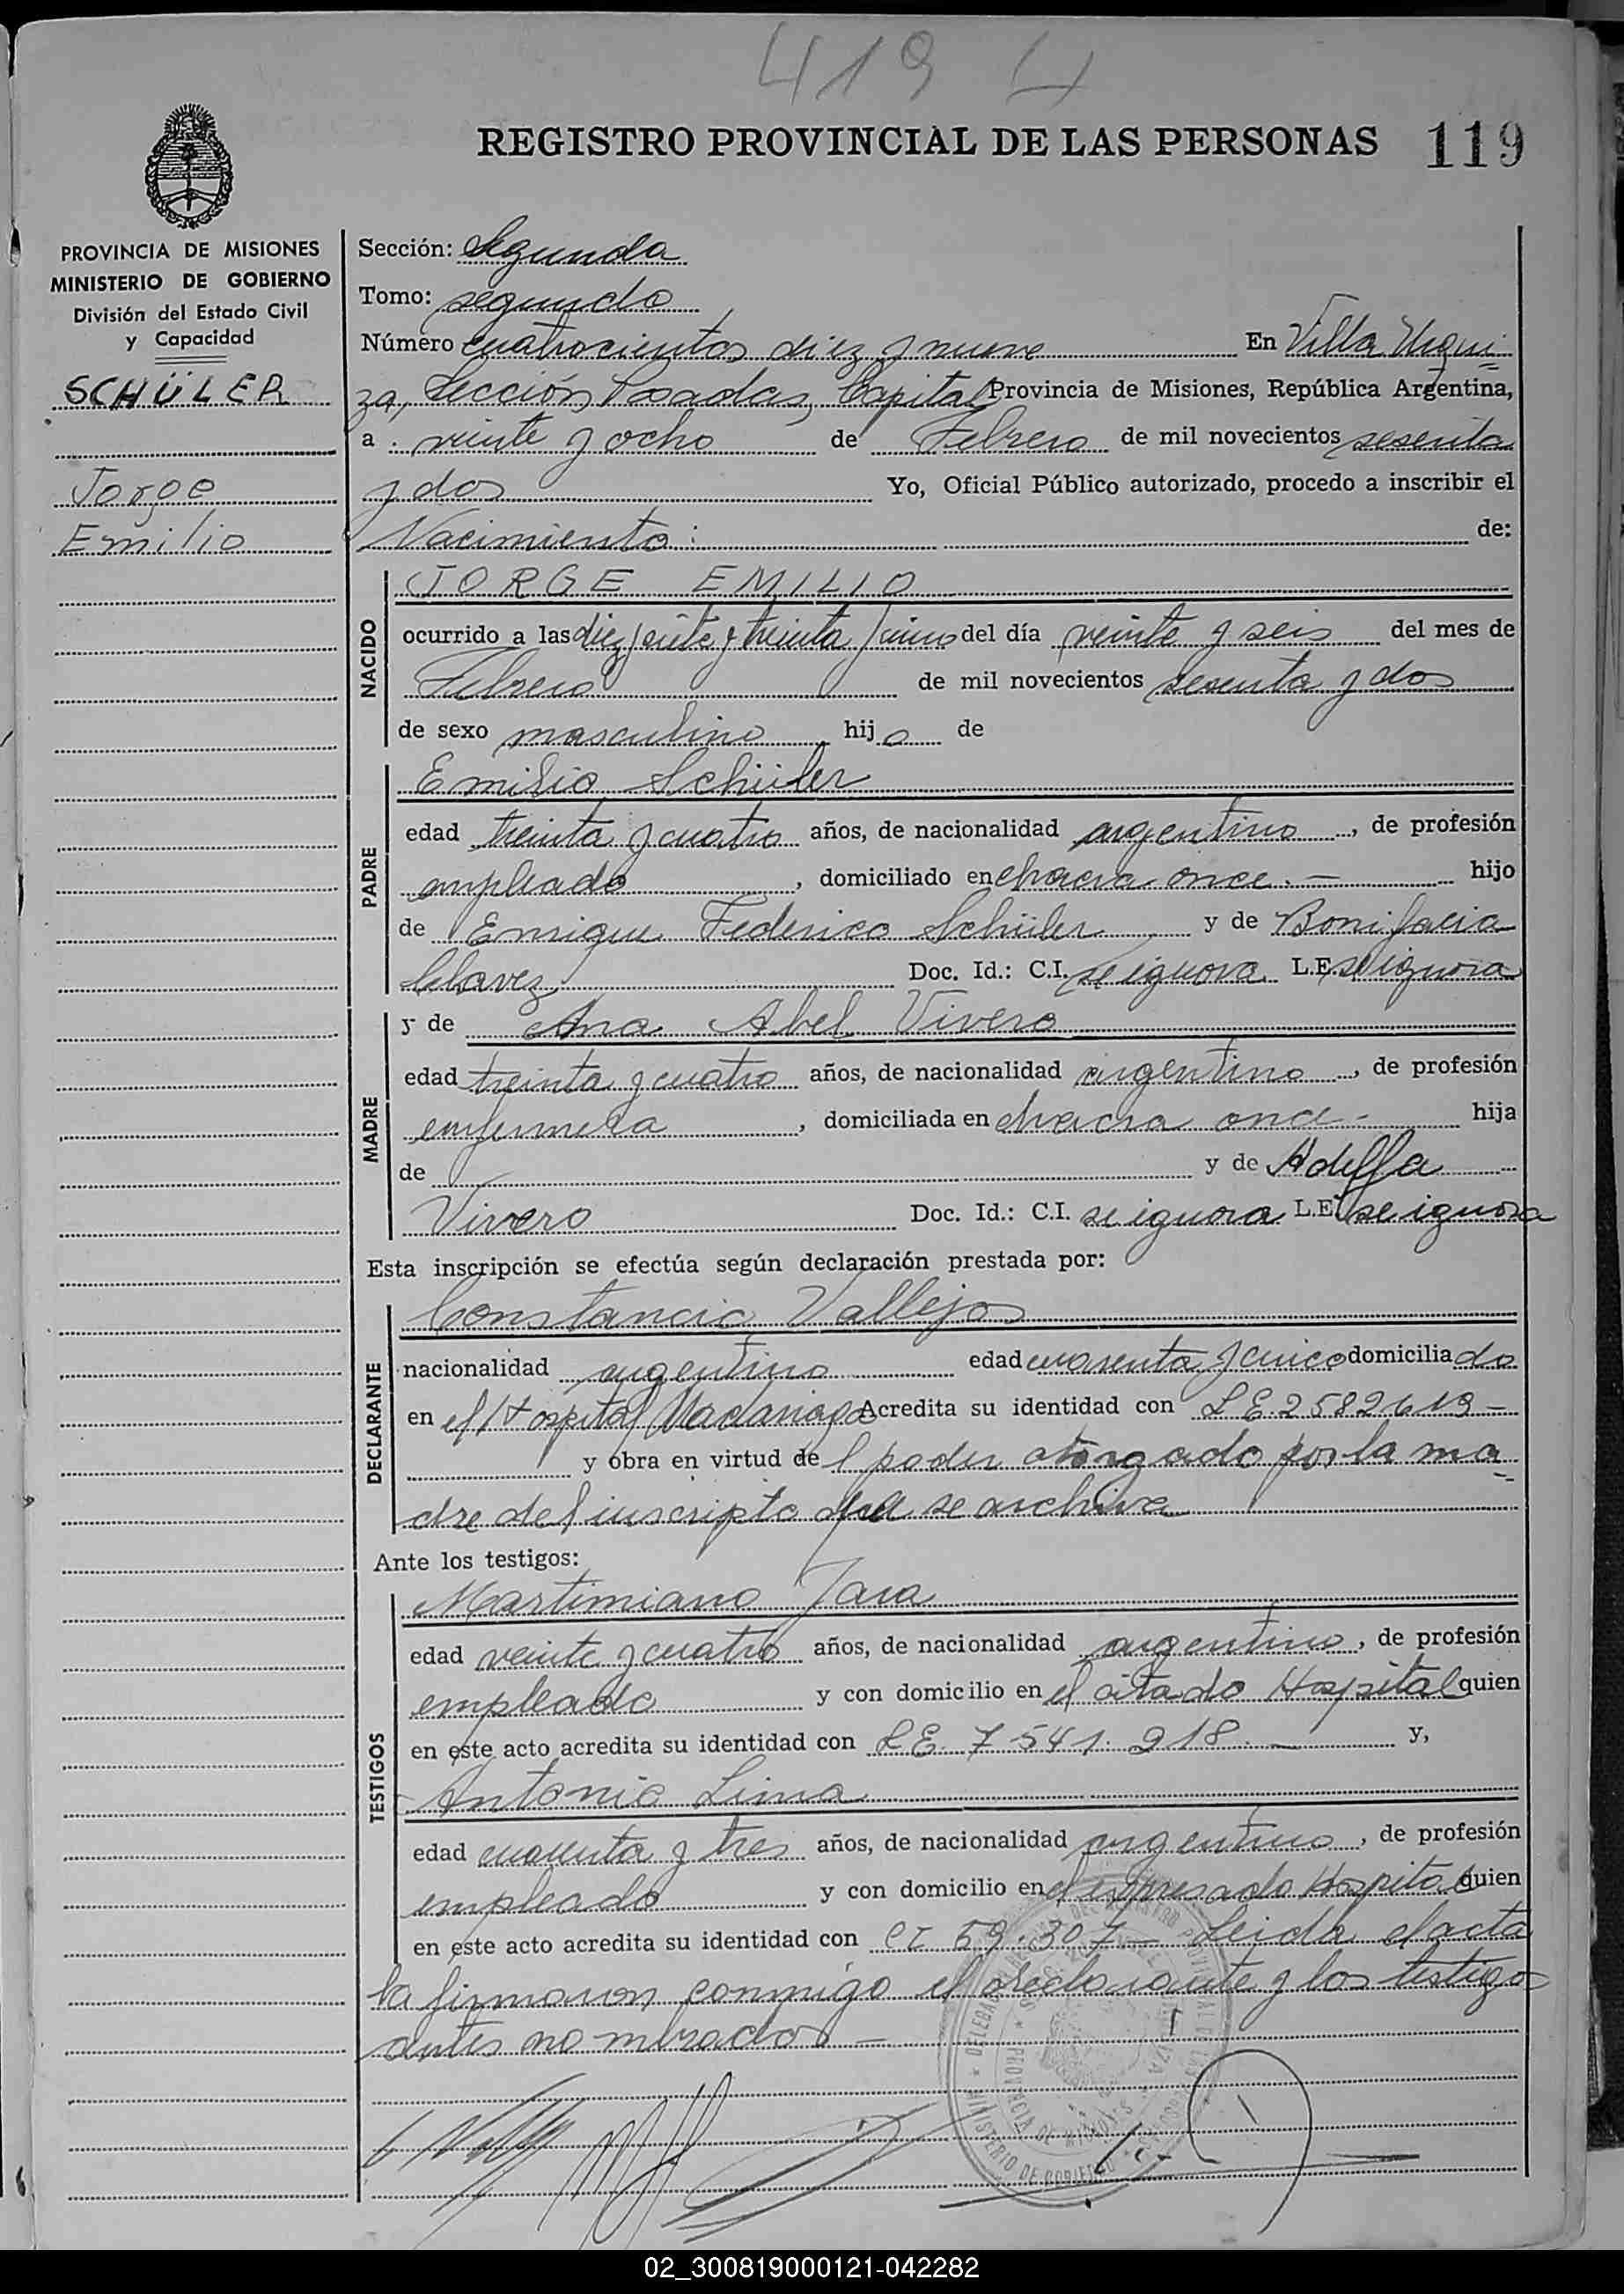 419
REGISTRO PROVINCIAL DE LAS PERSONAS 119
PROVINCIA DE MISIONES
MINISTERIO DE GOBIERNO
División del Estado Civil
y Capacidad
SCHÜLER
Jorge
Emilio
Sección: Segunda
Tomo: segundo
Número cuatrocientos diez y nueve En Villa Urqui
za, Sección Posadas, Capital Provincia de Misiones, República Argentina,
a veinte y ocho de Febrero de mil novecientos sesenta
y dos Yo, Oficial Público autorizado, procedo a inscribir el
Nacimiento: de:
NACIDO
JORGE EMILIO
ocurrido a las diez siete y treinta y cinco del día veinte y seis del mes de
Febrero de mil novecientos sesenta y dos
de sexo masculino hijo de
PADRE
Emilio Schüler
edad treinta y cuatro años, de nacionalidad argentino, de profesión
empleado, domiciliado en chacra once. - hijo
de Enrique Federico Schüler y de Bonifacia
Chavez Doc. Id.: C.I. se ignora L.E. se ignora
MADRE
y de Ana Abel Vivero
edad treinta y cuatro años, de nacionalidad argentina, de profesión
enfermera, domiciliada en chacra once - hija
de y de Adelfa
Vivero Doc. Id.: C.I. se ignora L.E. se ignora
Esta inscripción se efectúa según declaración prestada por:
DECLARANTE
Constancio Vallejos
nacionalidad argentino edad cuarenta y cinco domiciliado
en el Hospital Madariaga Acredita su identidad con LE 2582619 -
y obra en virtud del poder otorgado por la ma
dre del inscripto que se archiva
Ante los testigos:
TESTIGOS
Martimiano Jara
edad veinte y cuatro años, de nacionalidad argentino, de profesión
empleado y con domicilio en el citado Hospital quien
en este acto acredita su identidad con LE. 7.541.918. - y,
Antonio Lima
edad cuarenta y tres años, de nacionalidad argentino, de profesión
empleado y con domicilio en el expresado Hospital quien
en este acto acredita su identidad con CI 59.307 - Leida el acta
la firmaron conmigo el declarante y los testigos
antes nombrados -
02_300819000121-042282